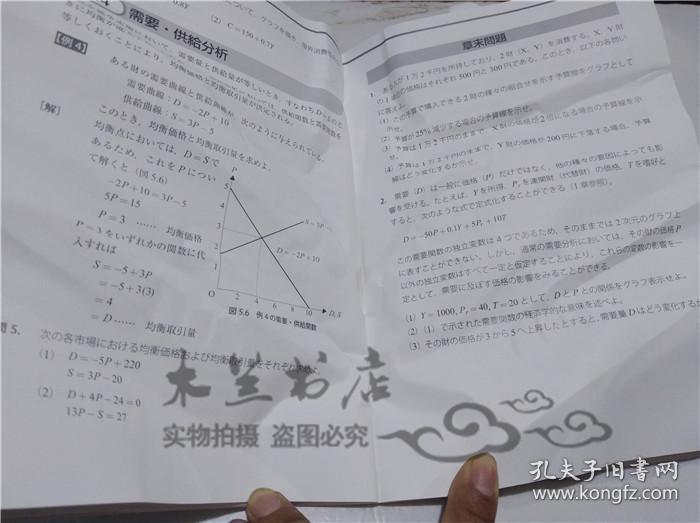 (2) C=150+0.7Y
需要・供給分析
【例4】
ある財の需要曲線と供給曲線が、次のように与えられている。
需要曲線:D=-2P+10
供給曲線:S=3P-5
このとき、均衡価格と均衡取引量を求めよ。
[解]
均衡点においては、D=Sで
あるため、これをPについ
て解くと(図5.6)
-2P+10=3P-5
5P=15
P=3 …… 均衡価格
P=3をいずれかの関数に代
入すれば
S=-5+3P
=-5+3(3)
=4
=D…… 均衡取引量
P
5
S=3P-5
D=-2P+10
O 2 4 6 8 10 D, S
図5.6 例4の需要・供給関数
問5. 次の各市場における均衡価格および均衡取引量をそれぞれ求めよ。
(1) D=-5P+220
S=3P-20
(2) D+4P-24=0
13P-S=27
章末問題
1. ある人が1万2千円を所持しており、2財(X, Y)を消費する。X, Y財
の1個の価格はそれぞれ500円と300円である。このとき、以下の各問い
に答えよ。
(1) この予算で購入できる2財の種々の組合せを示す予算線をグラフとして
示せ。
(2) 予算が25%減少する場合の予算線を示せ。
(3) 予算は1万2千円のままで、X財の価格が2倍になる場合の予算線を示
せ。
(4) 予算は1万2千円のままで、Y財の価格が200円に下落する場合、予算
線はどう変化するか示せ。
2. 需要(D)は一般に価格(P)だけではなく、他の種々の要因によっても影
響を受ける。たとえば、Yを所得、Prを連関財(代替財)の価格、Tを嗜好と
すると、次のような式で定式化することができる(1章参照)。
D=-50P+0.1Y+5Pr+10T
この需要関数の独立変数は4つであるため、そのままでは2次元のグラフ上
に表すことができない。しかし、通常の需要分析においては、その財の価格P
以外の独立変数はすべて一定と仮定することにより、これらの変数の影響を一
定として、需要に及ぼす価格の影響をみることができる。
(1) Y=1000, Pr=40, T=20として、DとPとの関係をグラフ表示せよ。
(2) (1)で示された需要関数の経済学的な意味を述べよ。
(3) その財の価格が3から5へ上昇したとすると、需要量Dはどう変化するか
木兰书店
实物拍摄 盗图必究
孔夫子旧书网
www.kongfz.com